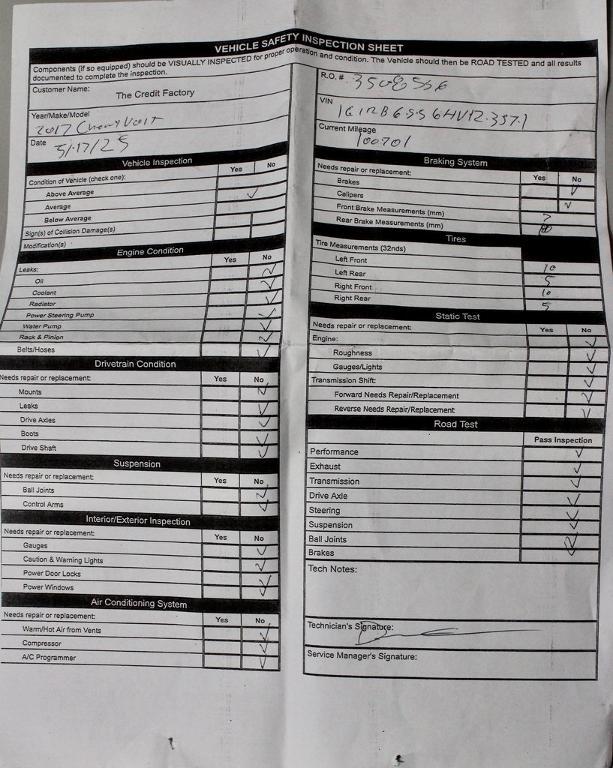 VEHICLE SAFETY INSPECTION SHEET
Components (if so equipped) should be VISUALLY INSPECTED for proper operation and condition. The Vehicle should then be ROAD TESTED and all results
documented to complete the inspection.
Customer Name:
The Credit Factory
Year/Make/Model
2017 Chevy Volt
Date 5/17/25
Vehicle Inspection
Condition of Vehicle (check one): Yes No
Above Average ✓
Average
Below Average
Sign(s) of Collision Damage(s)
Modification(s)
Engine Condition
Leaks: Yes No
Oil ✓
Coolant ✓
Radiator ✓
Power Steering Pump ✓
Water Pump ✓
Rack & Pinion ✓
Belts/Hoses ✓
Drivetrain Condition
Needs repair or replacement: Yes No
Mounts ✓
Leaks ✓
Drive Axles ✓
Boots ✓
Drive Shaft ✓
Suspension
Needs repair or replacement: Yes No
Ball Joints ✓
Control Arms ✓
Interior/Exterior Inspection
Needs repair or replacement: Yes No
Gauges ✓
Caution & Warning Lights ✓
Power Door Locks ✓
Power Windows ✓
Air Conditioning System
Needs repair or replacement: Yes No
Warm/Hot Air from Vents ✓
Compressor ✓
A/C Programmer ✓
R.O. #
VIN
Current Mileage
100701
Braking System
Needs repair or replacement: Yes No
Brakes ✓
Calipers ✓
Front Brake Measurements (mm) 7
Rear Brake Measurements (mm)
Tires
Tire Measurements (32nds)
Left Front 10
Left Rear 5
Right Front 10
Right Rear 5
Static Test
Needs repair or replacement: Yes No
Engine: ✓
Roughness ✓
Gauges/Lights ✓
Transmission Shift: ✓
Forward Needs Repair/Replacement ✓
Reverse Needs Repair/Replacement ✓
Road Test
Pass Inspection
Performance ✓
Exhaust ✓
Transmission ✓
Drive Axle ✓
Steering ✓
Suspension ✓
Ball Joints ✓
Brakes ✓
Tech Notes:
Technician's Signature:
Service Manager's Signature: